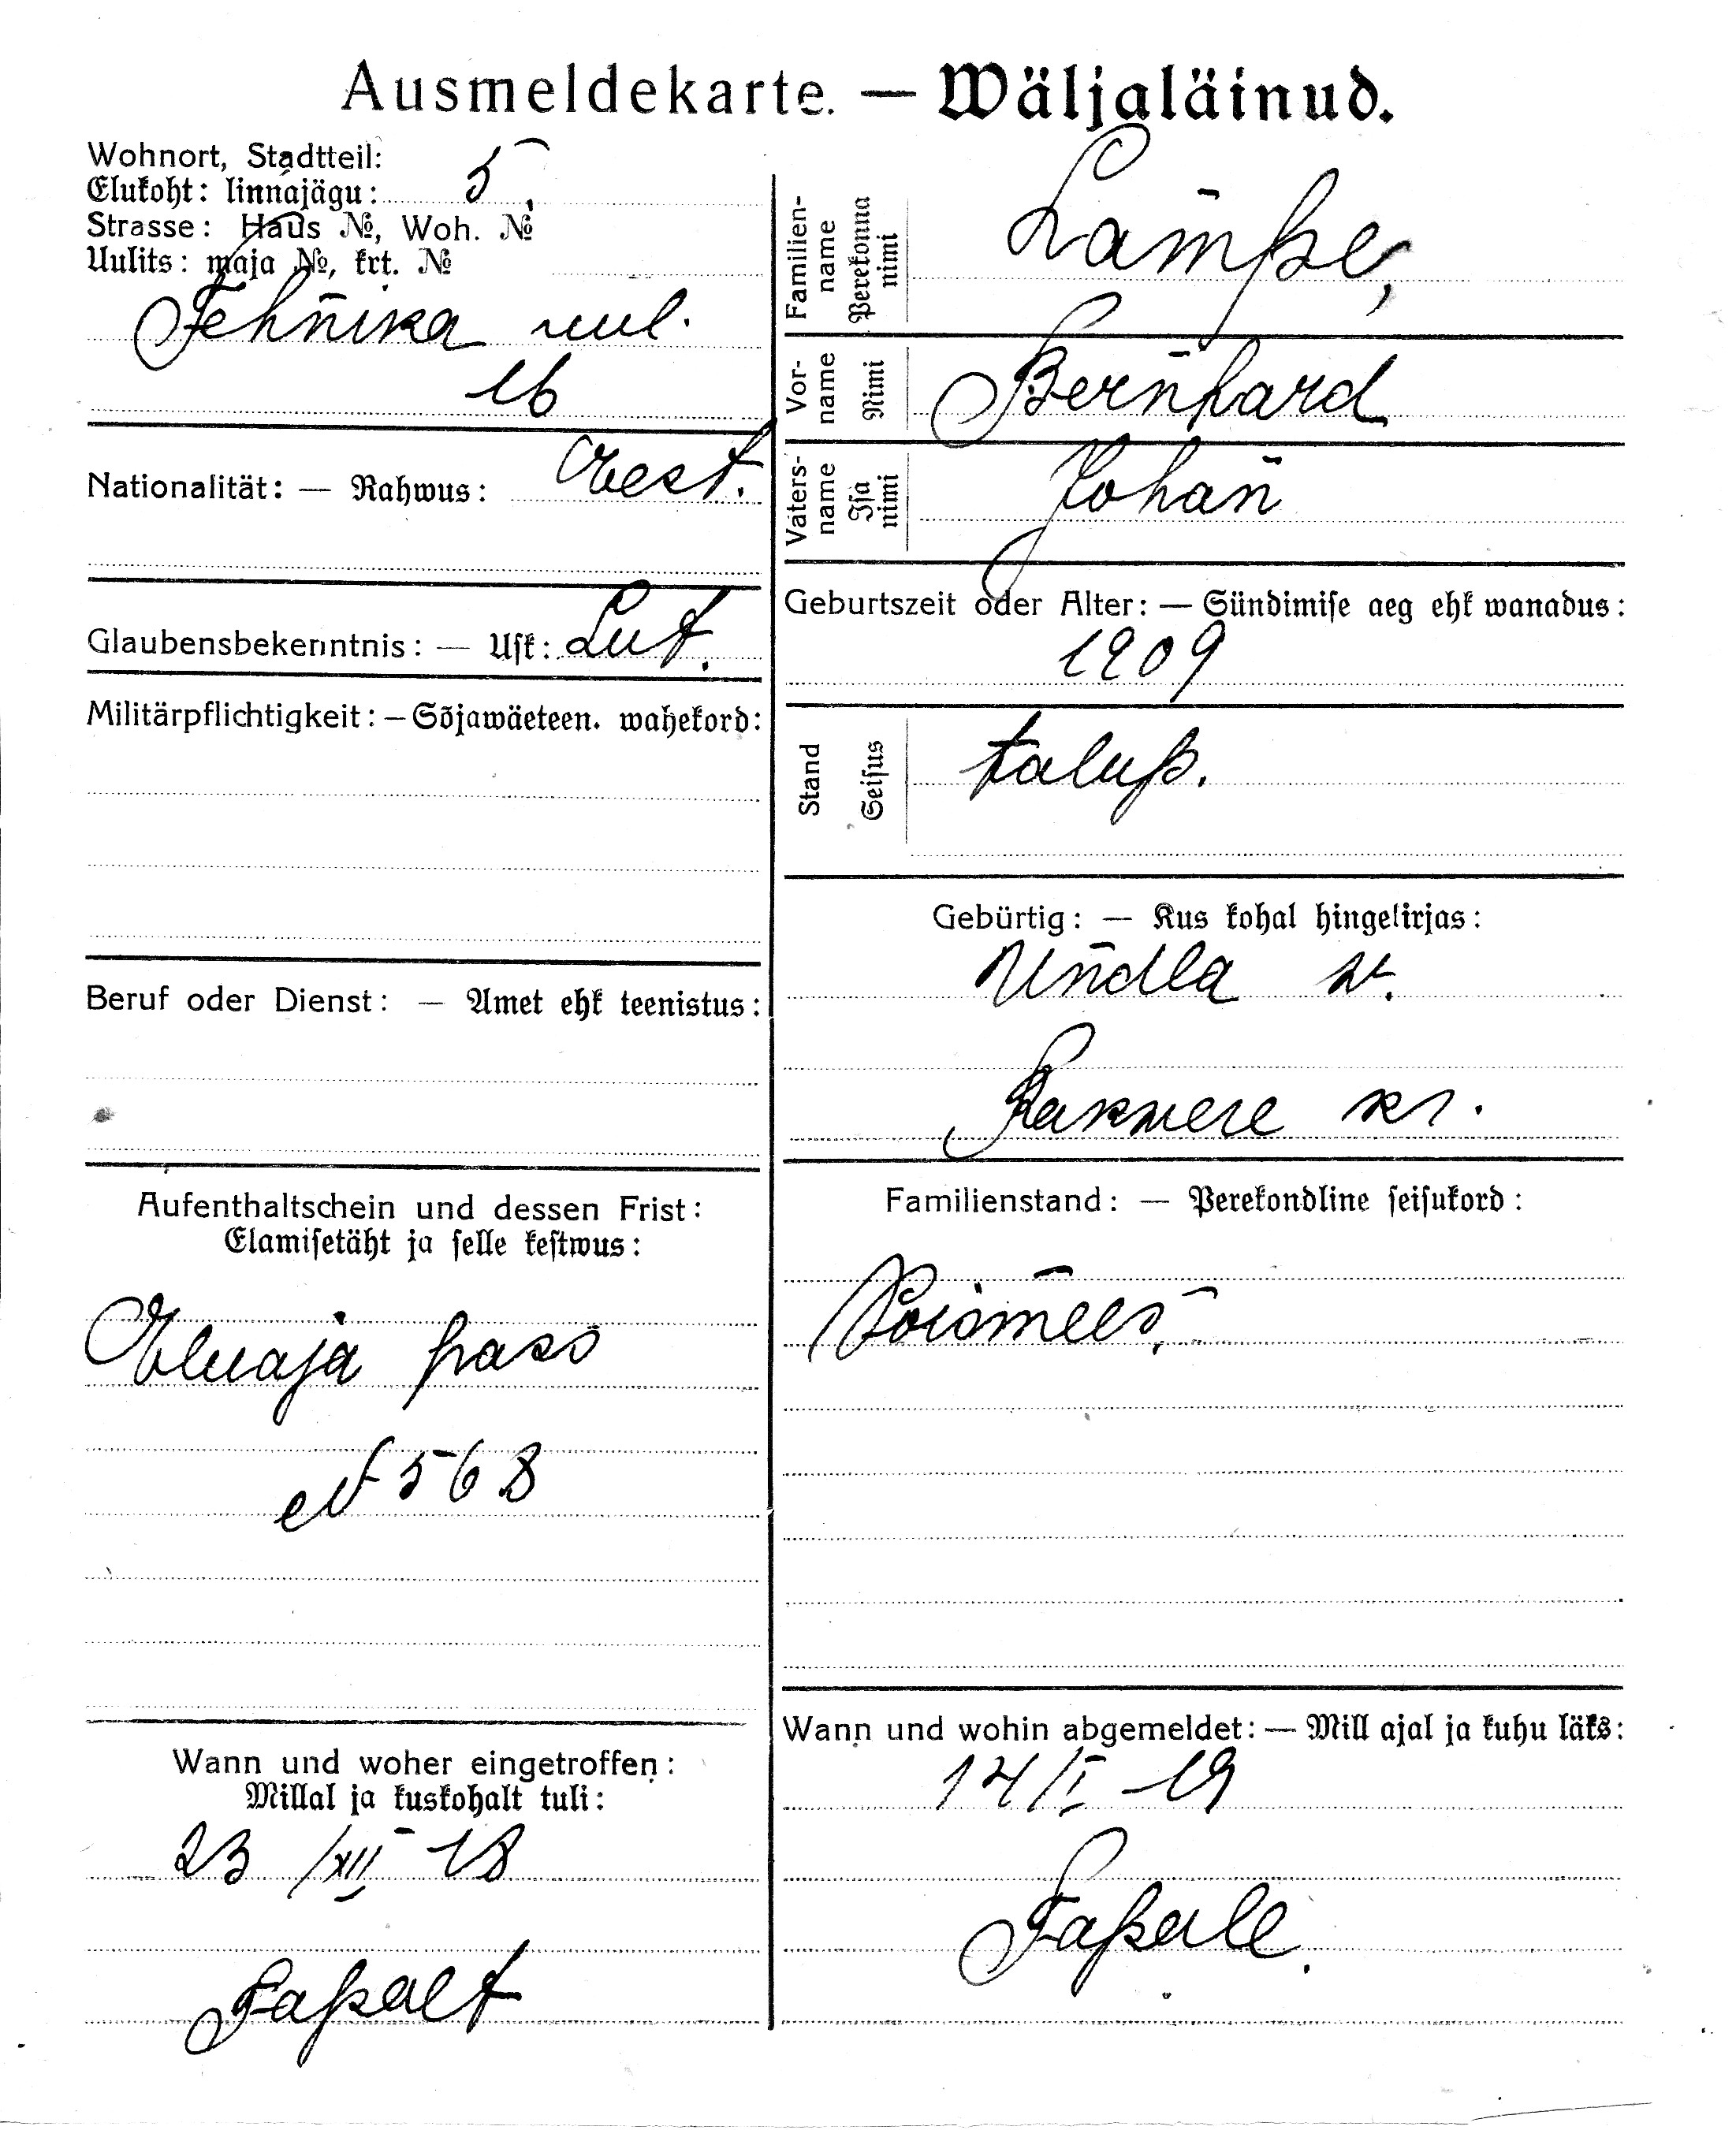 Ausmeldekarte. — Wäljaläinud.
Wohnort, Stadtteil:
Elukoht: linnajägu: 5.
Strasse: Haus №, Woh. №
Uulits: maja №, krt. №
Tehnika uul.
16
Nationalität: — Rahwus: Eest.
Glaubensbekenntnis: — Usk: Lut.
Militärpflichtigkeit: — Sõjawäeteen. wahekord:
Beruf oder Dienst: — Amet ehk teenistus:
Aufenthaltschein und dessen Frist:
Elamisetäht ja selle kestwus:
Eluaja pass
№ 568
Wann und woher eingetroffen:
Millal ja kuskohalt tuli:
23 /XII 18
Tapalt
Familien-
name
Perekonna
nimi
Lampe,
Vor-
name
Nimi
Bernhard
Vaters-
name
Isa
nimi
Johan
Geburtszeit oder Alter: — Sündimise aeg ehk wanadus:
1909
Stand
Seisus
talup.
Gebürtig: — Kus kohal hingekirjas:
Undla w.
Rakwere kr.
Familienstand: — Perekondline seisukord:
Poismees,
Wann und wohin abgemeldet: — Mill ajal ja kuhu läks:
14/I -19
Tapale.